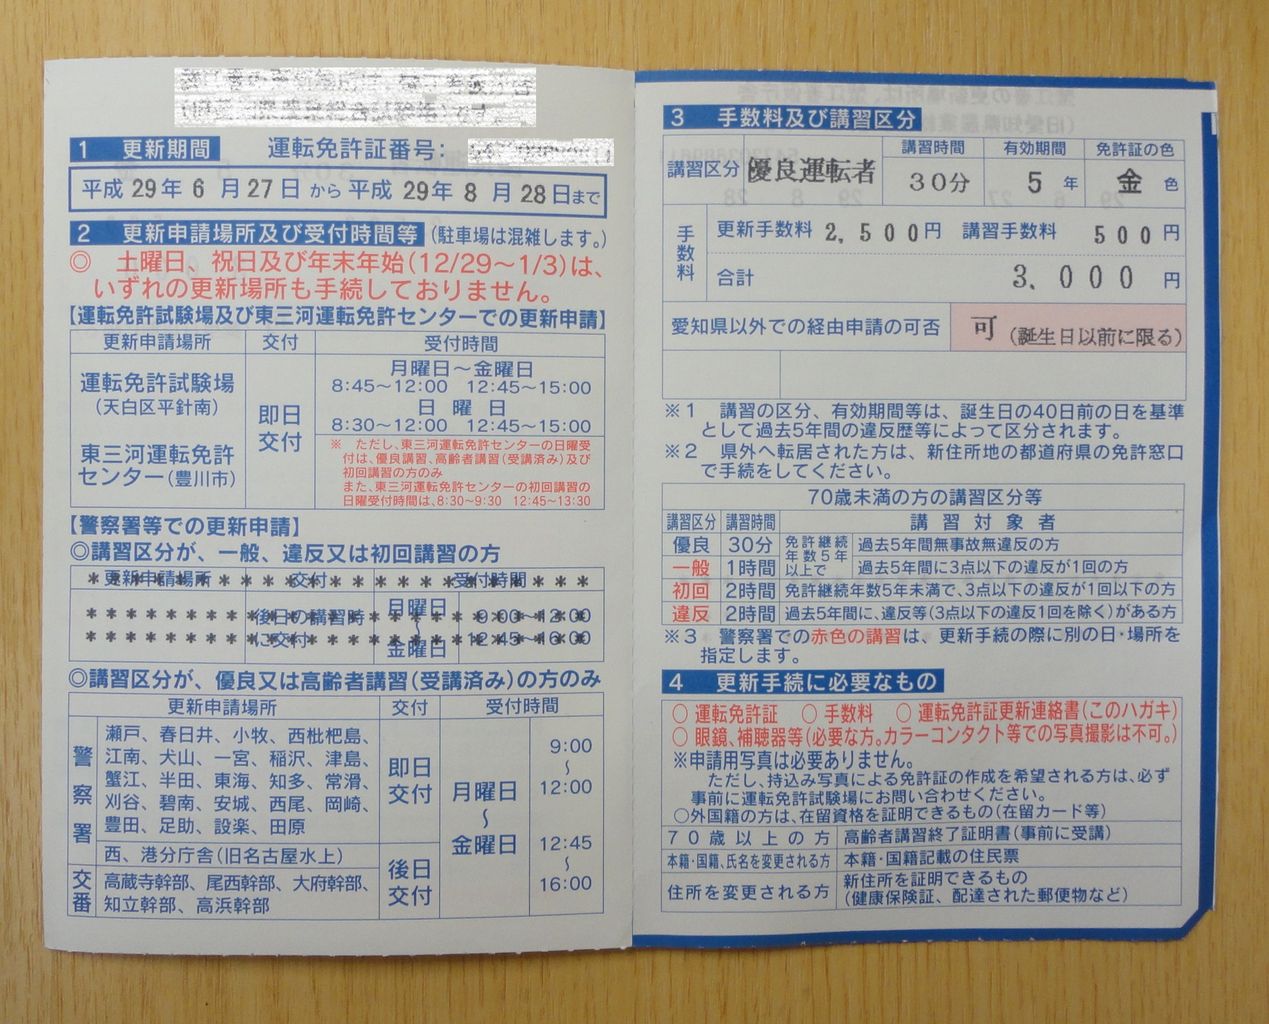 1 更新期間 運転免許証番号:
平成 29年 6月 27日 から 平成 29年 8月 28日まで
2 更新申請場所及び受付時間等 (駐車場は混雑します。)
◎ 土曜日、祝日及び年末年始(12/29～1/3)は、
いずれの更新場所も手続しておりません。
【運転免許試験場及び東三河運転免許センターでの更新申請】
更新申請場所 交付 受付時間
運転免許試験場
(天白区平針南)
東三河運転免許
センター(豊川市)
即日
交付
月曜日～金曜日
8:45～12:00 12:45～15:00
日曜日
8:30～12:00 12:45～15:00
※ ただし、東三河運転免許センターの日曜受
付は、優良講習、高齢者講習(受講済み)及び
初回講習の方のみ
また、東三河運転免許センターの初回講習の
日曜受付時間は、8:30～9:30 12:45～13:30
【警察署等での更新申請】
◎講習区分が、一般、違反又は初回講習の方
更新申請場所 交付 受付時間
後日の講習時
に交付
月曜日
～
金曜日
9:00～12:00
12:45～16:00
◎講習区分が、優良又は高齢者講習(受講済み)の方のみ
更新申請場所 交付 受付時間
警察署
瀬戸、春日井、小牧、西枇杷島、
江南、犬山、一宮、稲沢、津島、
蟹江、半田、東海、知多、常滑、
刈谷、碧南、安城、西尾、岡崎、
豊田、足助、設楽、田原
西、港分庁舎(旧名古屋水上)
交番
高蔵寺幹部、尾西幹部、大府幹部、
知立幹部、高浜幹部
即日
交付
後日
交付
月曜日
～
金曜日
9:00
～
12:00
12:45
～
16:00
3 手数料及び講習区分
講習区分 優良運転者 講習時間 30分 有効期間 5年 免許証の色 金色
手数料
更新手数料 2,500円 講習手数料 500円
合計 3,000円
愛知県以外での経由申請の可否 可 (誕生日以前に限る)
※1 講習の区分、有効期間等は、誕生日の40日前の日を基準
として過去5年間の違反歴等によって区分されます。
※2 県外へ転居された方は、新住所地の都道府県の免許窓口
で手続をしてください。
70歳未満の方の講習区分等
講習区分 講習時間 講習対象者
優良 30分 免許継続年数5年以上で 過去5年間無事故無違反の方
一般 1時間 過去5年間に3点以下の違反が1回の方
初回 2時間 免許継続年数5年未満で、3点以下の違反が1回以下の方
違反 2時間 過去5年間に、違反等(3点以下の違反1回を除く)がある方
※3 警察署での赤色の講習は、更新手続の際に別の日・場所を
指定します。
4 更新手続に必要なもの
○ 運転免許証 ○ 手数料 ○ 運転免許証更新連絡書(このハガキ)
○ 眼鏡、補聴器等(必要な方。カラーコンタクト等での写真撮影は不可。)
※申請用写真は必要ありません。
ただし、持込み写真による免許証の作成を希望される方は、必ず
事前に運転免許試験場にお問い合わせください。
○外国籍の方は、在留資格を証明できるもの(在留カード等)
70歳以上の方 高齢者講習終了証明書(事前に受講)
本籍・国籍、氏名を変更される方 本籍・国籍記載の住民票
住所を変更される方 新住所を証明できるもの
(健康保険証、配達された郵便物など)